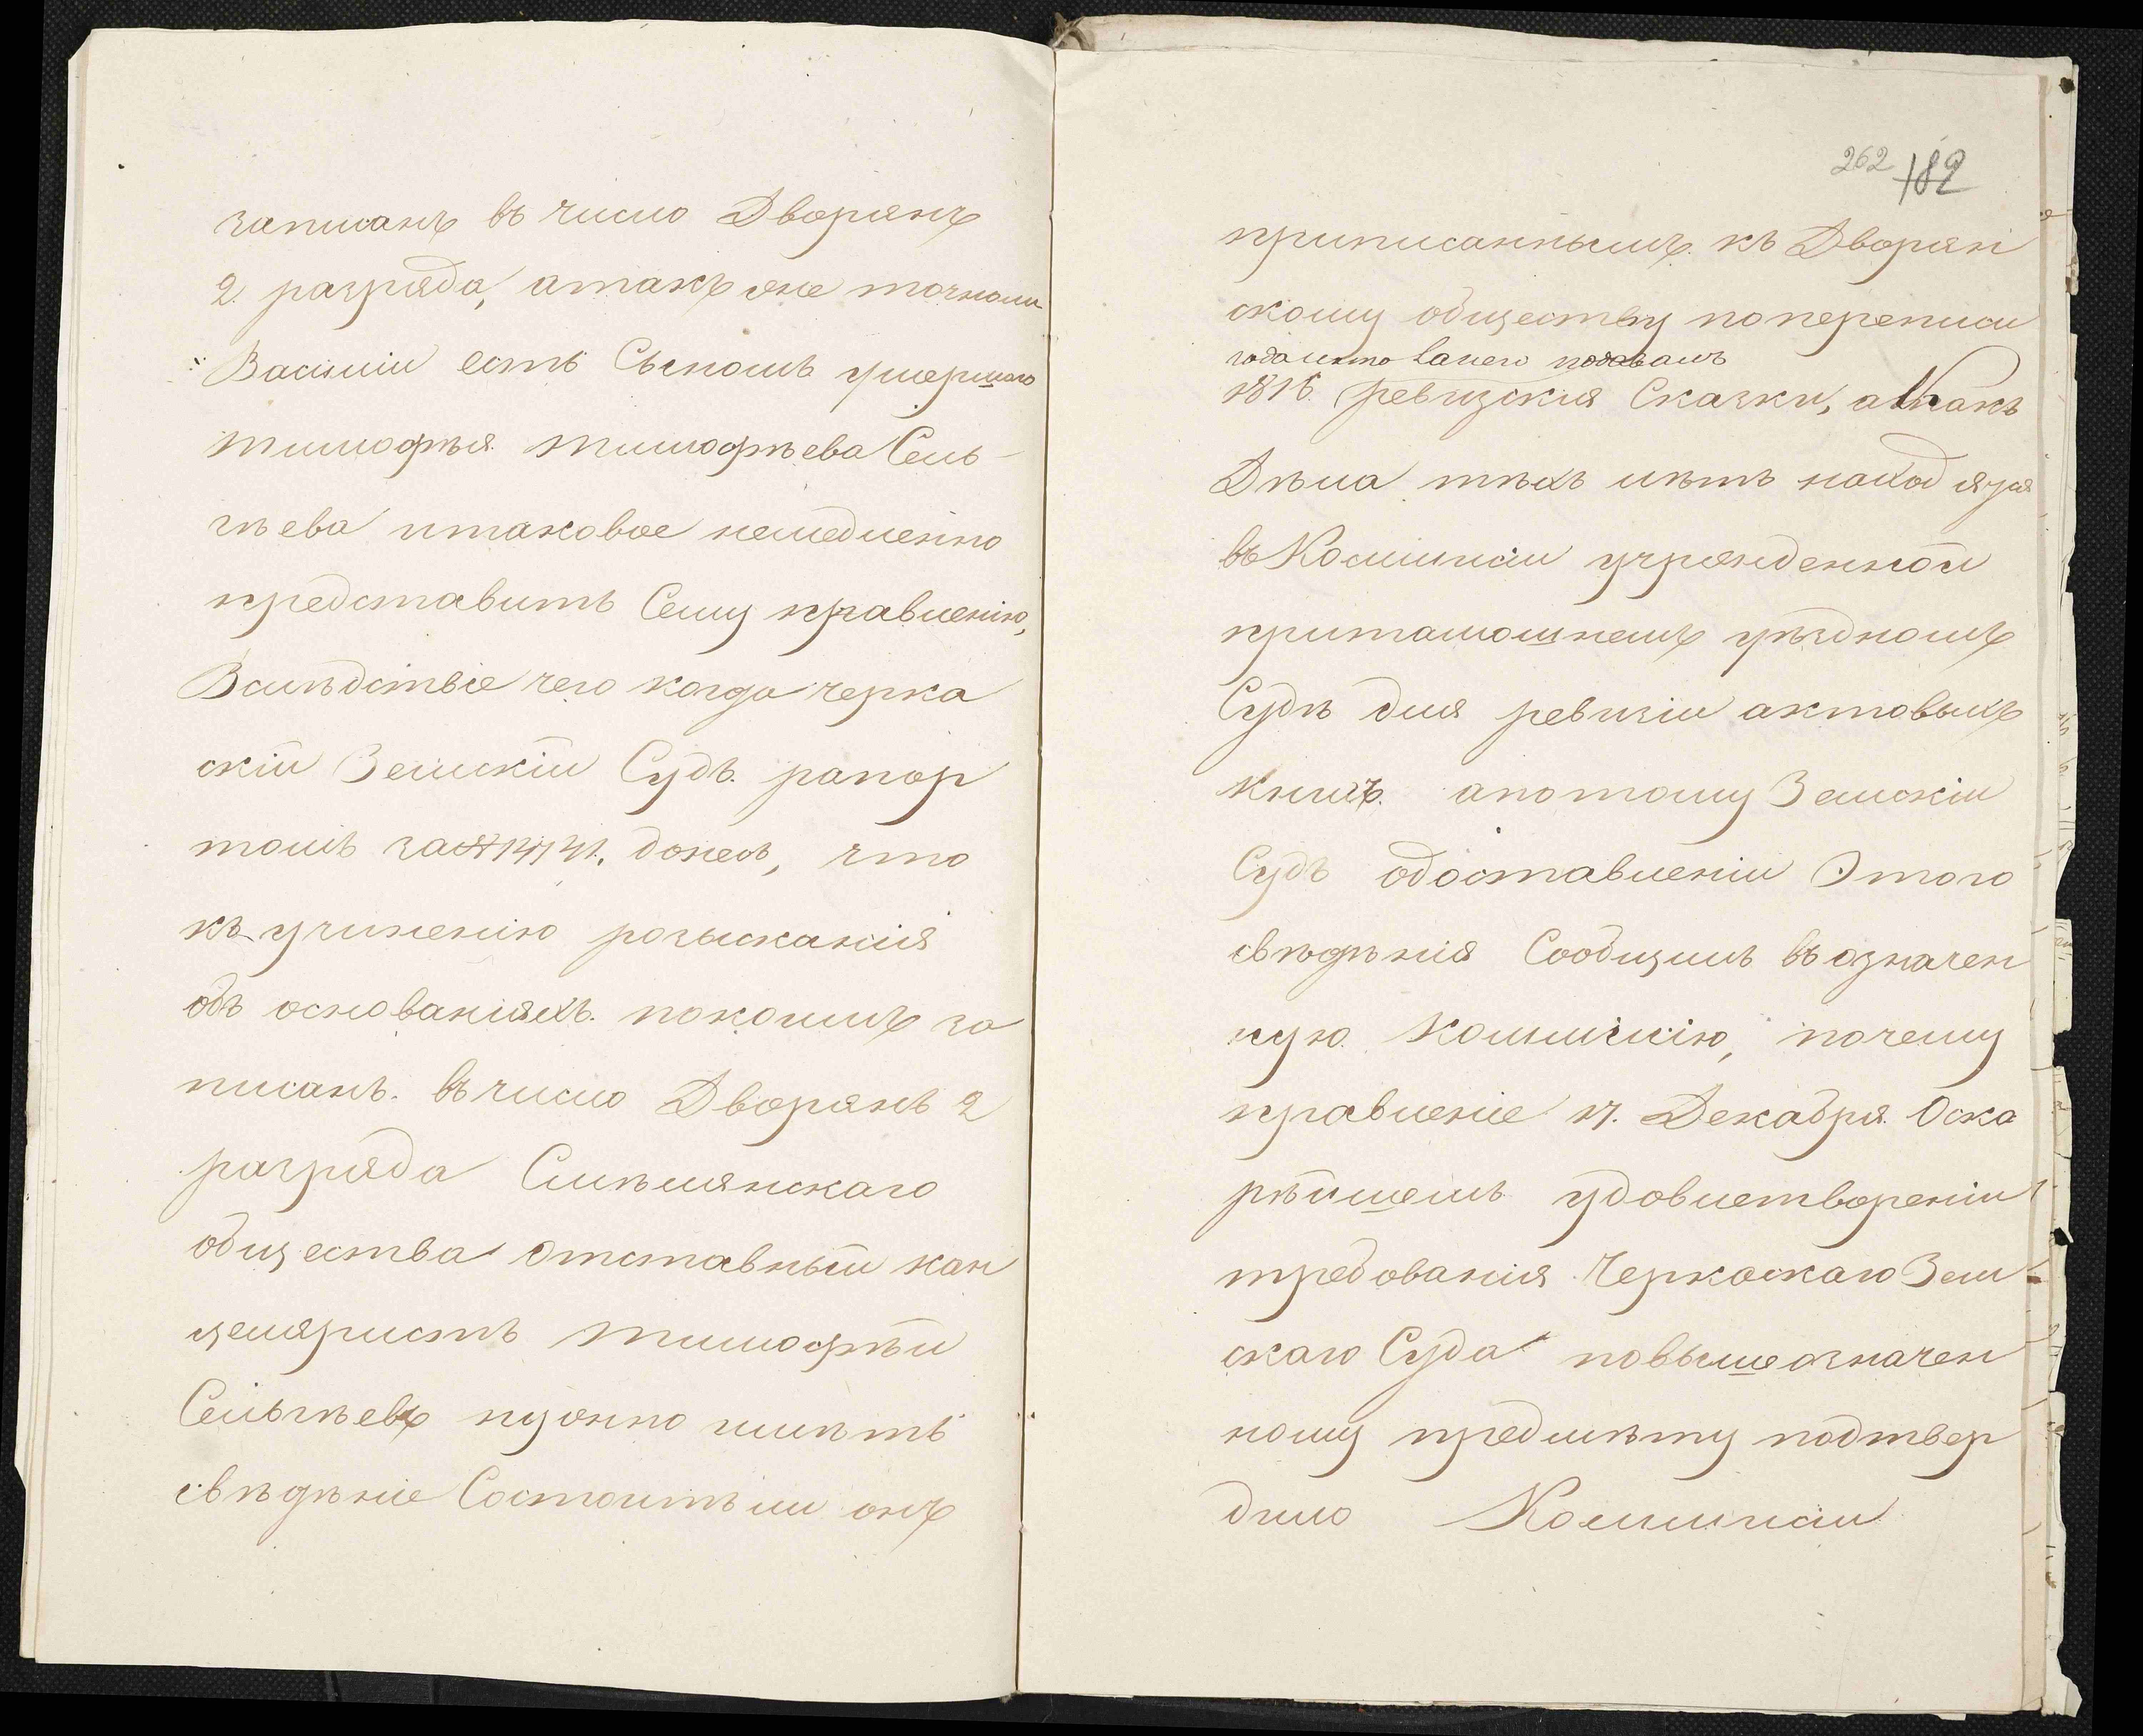 записанъ въ число Дворянъ
2. разряда, а такъ же точноли
Василій есть Сыномъ умершаго
Тимофѣя Тимофѣева Сель
гѣева и таковое немедленно
представить Сему правленію,
Вслѣдствіе чего когда Черка
скій Земскій Судъ рапор
томъ за № 14741. донесъ, что
къ учиненію розысканія
объ основаніяхъ по коимъ за
писанъ въ число Дворянъ 2
разряда Смѣлянскаго
общества Отставный кан
целяристъ Тимофѣй
Сельгѣевъ нужно имѣть
свѣденіе Состоитъ ли онъ
262 182
приписаннымъ къ Дворян
скому обществу по переписи
года и кто на него подавалъ
1816. ревизскія Сказки, а какъ
Дѣла тѣхъ лѣтъ находятся
въ Коммисіи учрежденной
при тамошнемъ уѣздномъ
Судѣ для ревизіи актовыхъ
книгъ. а потому Земскій
Судъ о доставленіи Этого
свѣденія Сообщилъ въ означен
ную Коммисію, почему
правленіе 17. Декабря О ско
рѣйшемъ удовлетвореніи
требованія Черкаскаго Зем
скаго Суда по вышеозначен
ному предмѣту подтвер
дило Коммисіи